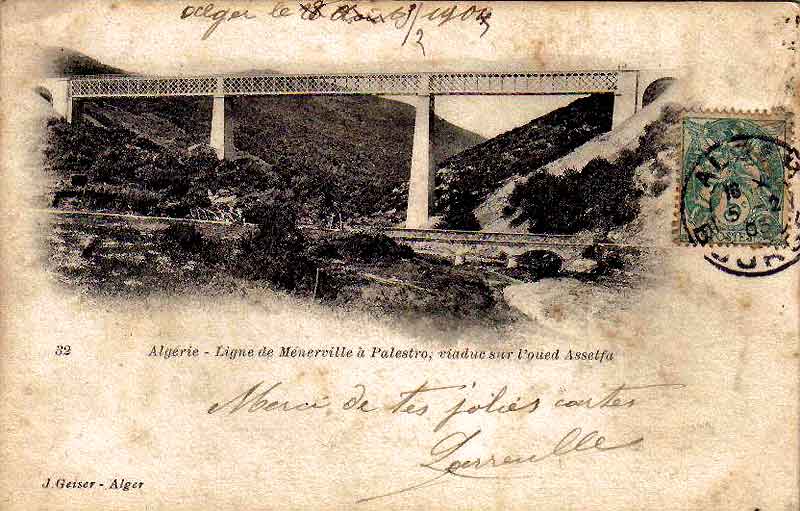 Alger le 18/2 1904
32 Algérie - Ligne de Ménerville à Palestro, viaduc sur l'oued Asselfa
Merci de tes jolies cartes
J. Geiser - Alger